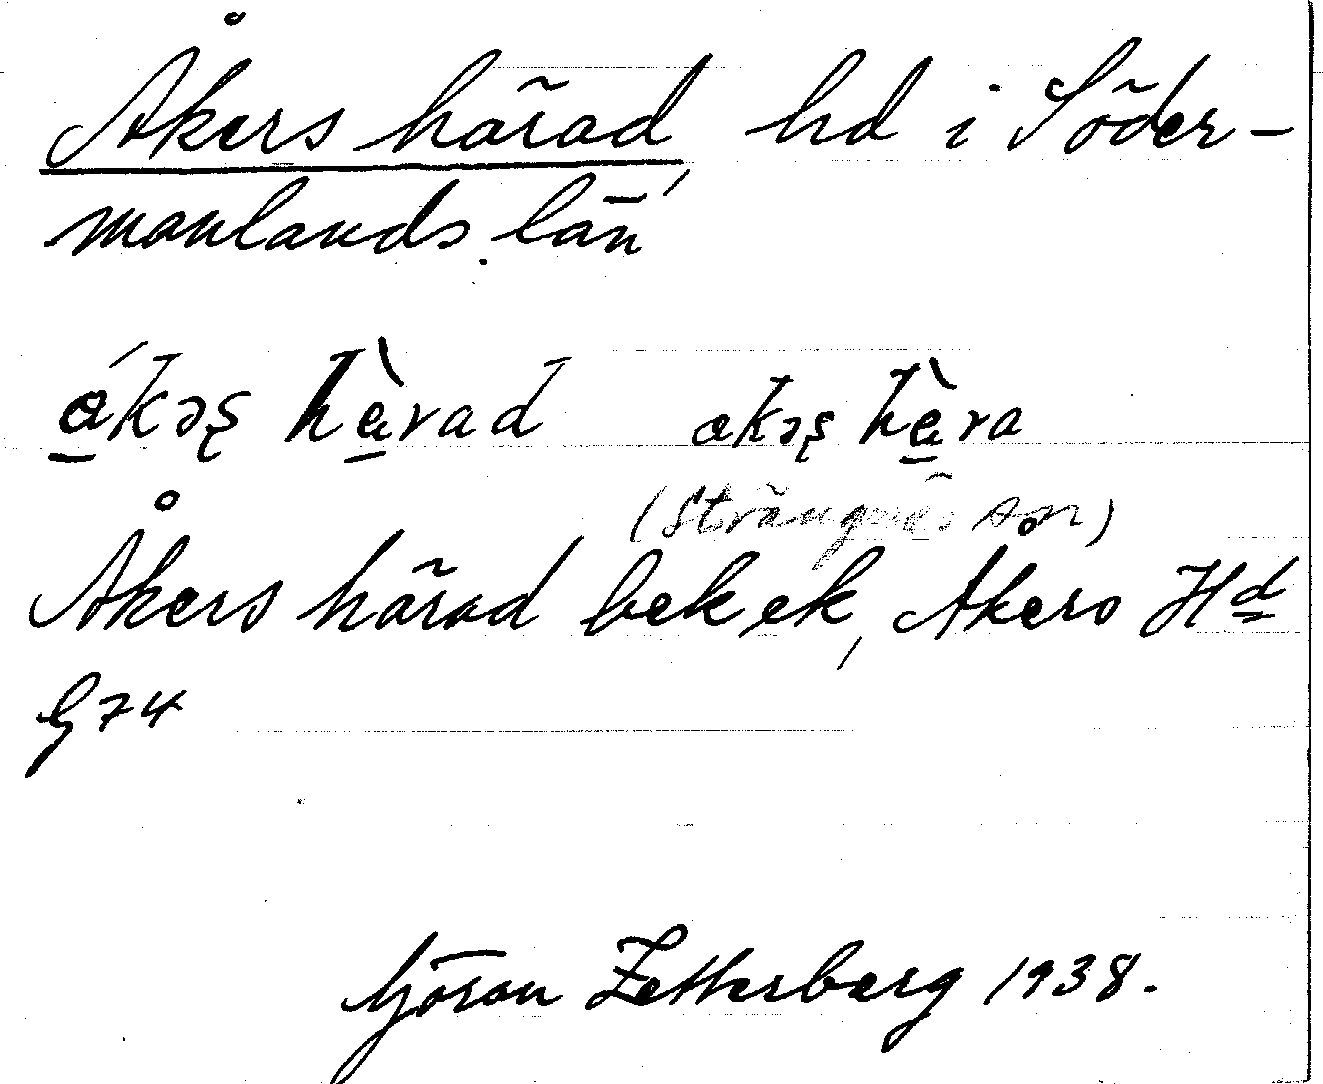 Åkers härad, hd i Söder-
manlands län
ákəʂ hàrad akəʂ hàra
(Strängnäs sn)
Åkers härad bek ek, Åkers Hd
G74
Göran Zetterberg 1938.